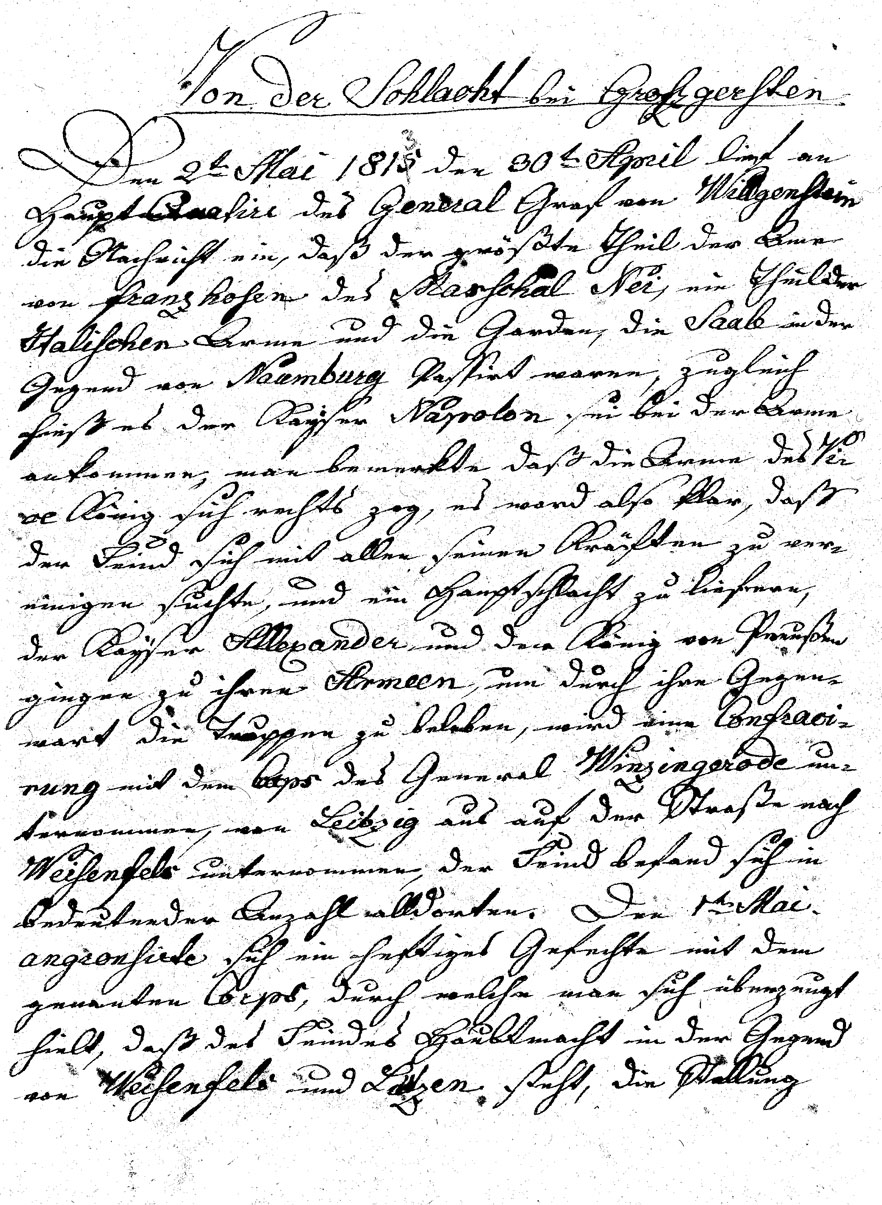 Von der Schlacht bei Großgerschen
Den 2t Mai 1813 den 30t April lief am
Haupt des General Graf von Witgenstein
die Nachricht ein, daß der größte Theil der Arme
von franzhosen des Marschal Nei, ein Theil der
Italischen Arme und die Garden, die Saale in der
Gegend von Naumburg Passirt waren, zugleich
hieß es der Kayser Napolon sei bei der Arme
ankommen, man bemerkte daß die Arme des Vi¬
ce König sich rechts zog, es ward also klar, daß
der Feind sich mit allen seinen Kräften zu ver¬
einigen suchte, und ein Hauptschlacht zu liefern,
der Kayser Allexander und der König von Preußen
gingen zu ihren Armeen, um durch ihre Gegen¬
wart die Truppen zu beleben, wird eine
rung mit dem Corps des General Winzingerode un¬
ternommen, von Leibzig aus auf der Straße nach
Weisenfels unternommen, der Feind befand sich in
bedeutender Anzahl alldorten. Den 1ten Mai
sich ein heftiges Gefechte mit dem
genanten Corps, durch welche man sich überzeugt
hielt, daß des Feindes Haubtmacht in der Gegend
von Weisenfels und Lützen steht, die Stellung